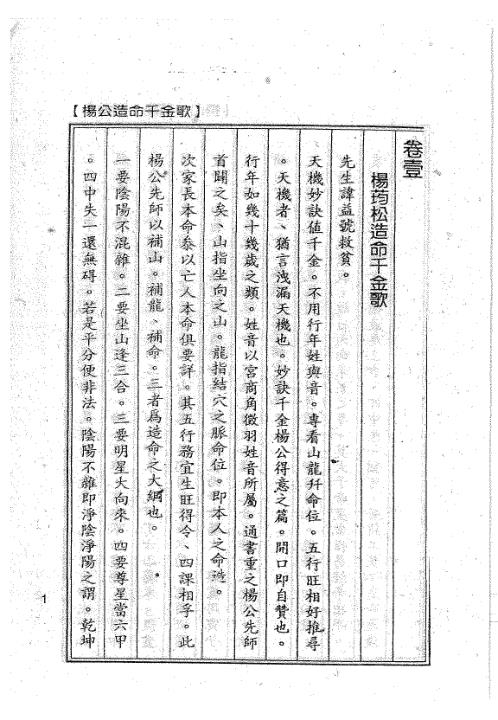 【楊公造命千金歌】
卷壹
楊筠松造命千金歌
先生諱益號救貧。
天機妙訣值千金。不用行年姓與音。專看山龍幷命位。五行旺相好推尋
。天機者、猶言洩漏天機也。妙訣千金楊公得意之篇。開口即自贊也。
行年如幾十幾歲之類。姓音以宮商角徵羽姓音所屬。通書重之楊公先師
首闢之矣、山指坐向之山。龍指結穴之脈命位。即本人之命造。
次家長本命泰以亡人本命俱要詳。其五行務宜生旺得令、四課相孚。此
楊公先師以補山。補龍、補命。三者爲造命之大綱也。
一要陰陽不混雜。二要坐山逢三合。三要明星入向來。四要尊星當六甲
。四中失一還無碍。若是平分便非法。陰陽不雜即淨陰淨陽之謂。乾坤
1